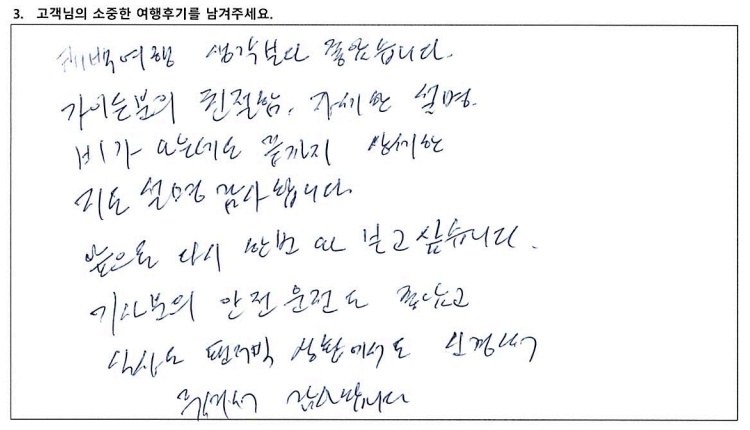 3. 고객님의 소중한 여행후기를 남겨주세요.
태백여행 생각보다 좋았습니다.
가이드분의 친절함, 자세한 설명.
비가 오는데도 끝까지 상세한
지도 설명 감사합니다.
앞으로 다시 한번 와 보고 싶습니다.
기사분의 안전 운전도 좋았고
식사도 상황에서도 신경써
줘서 감사합니다